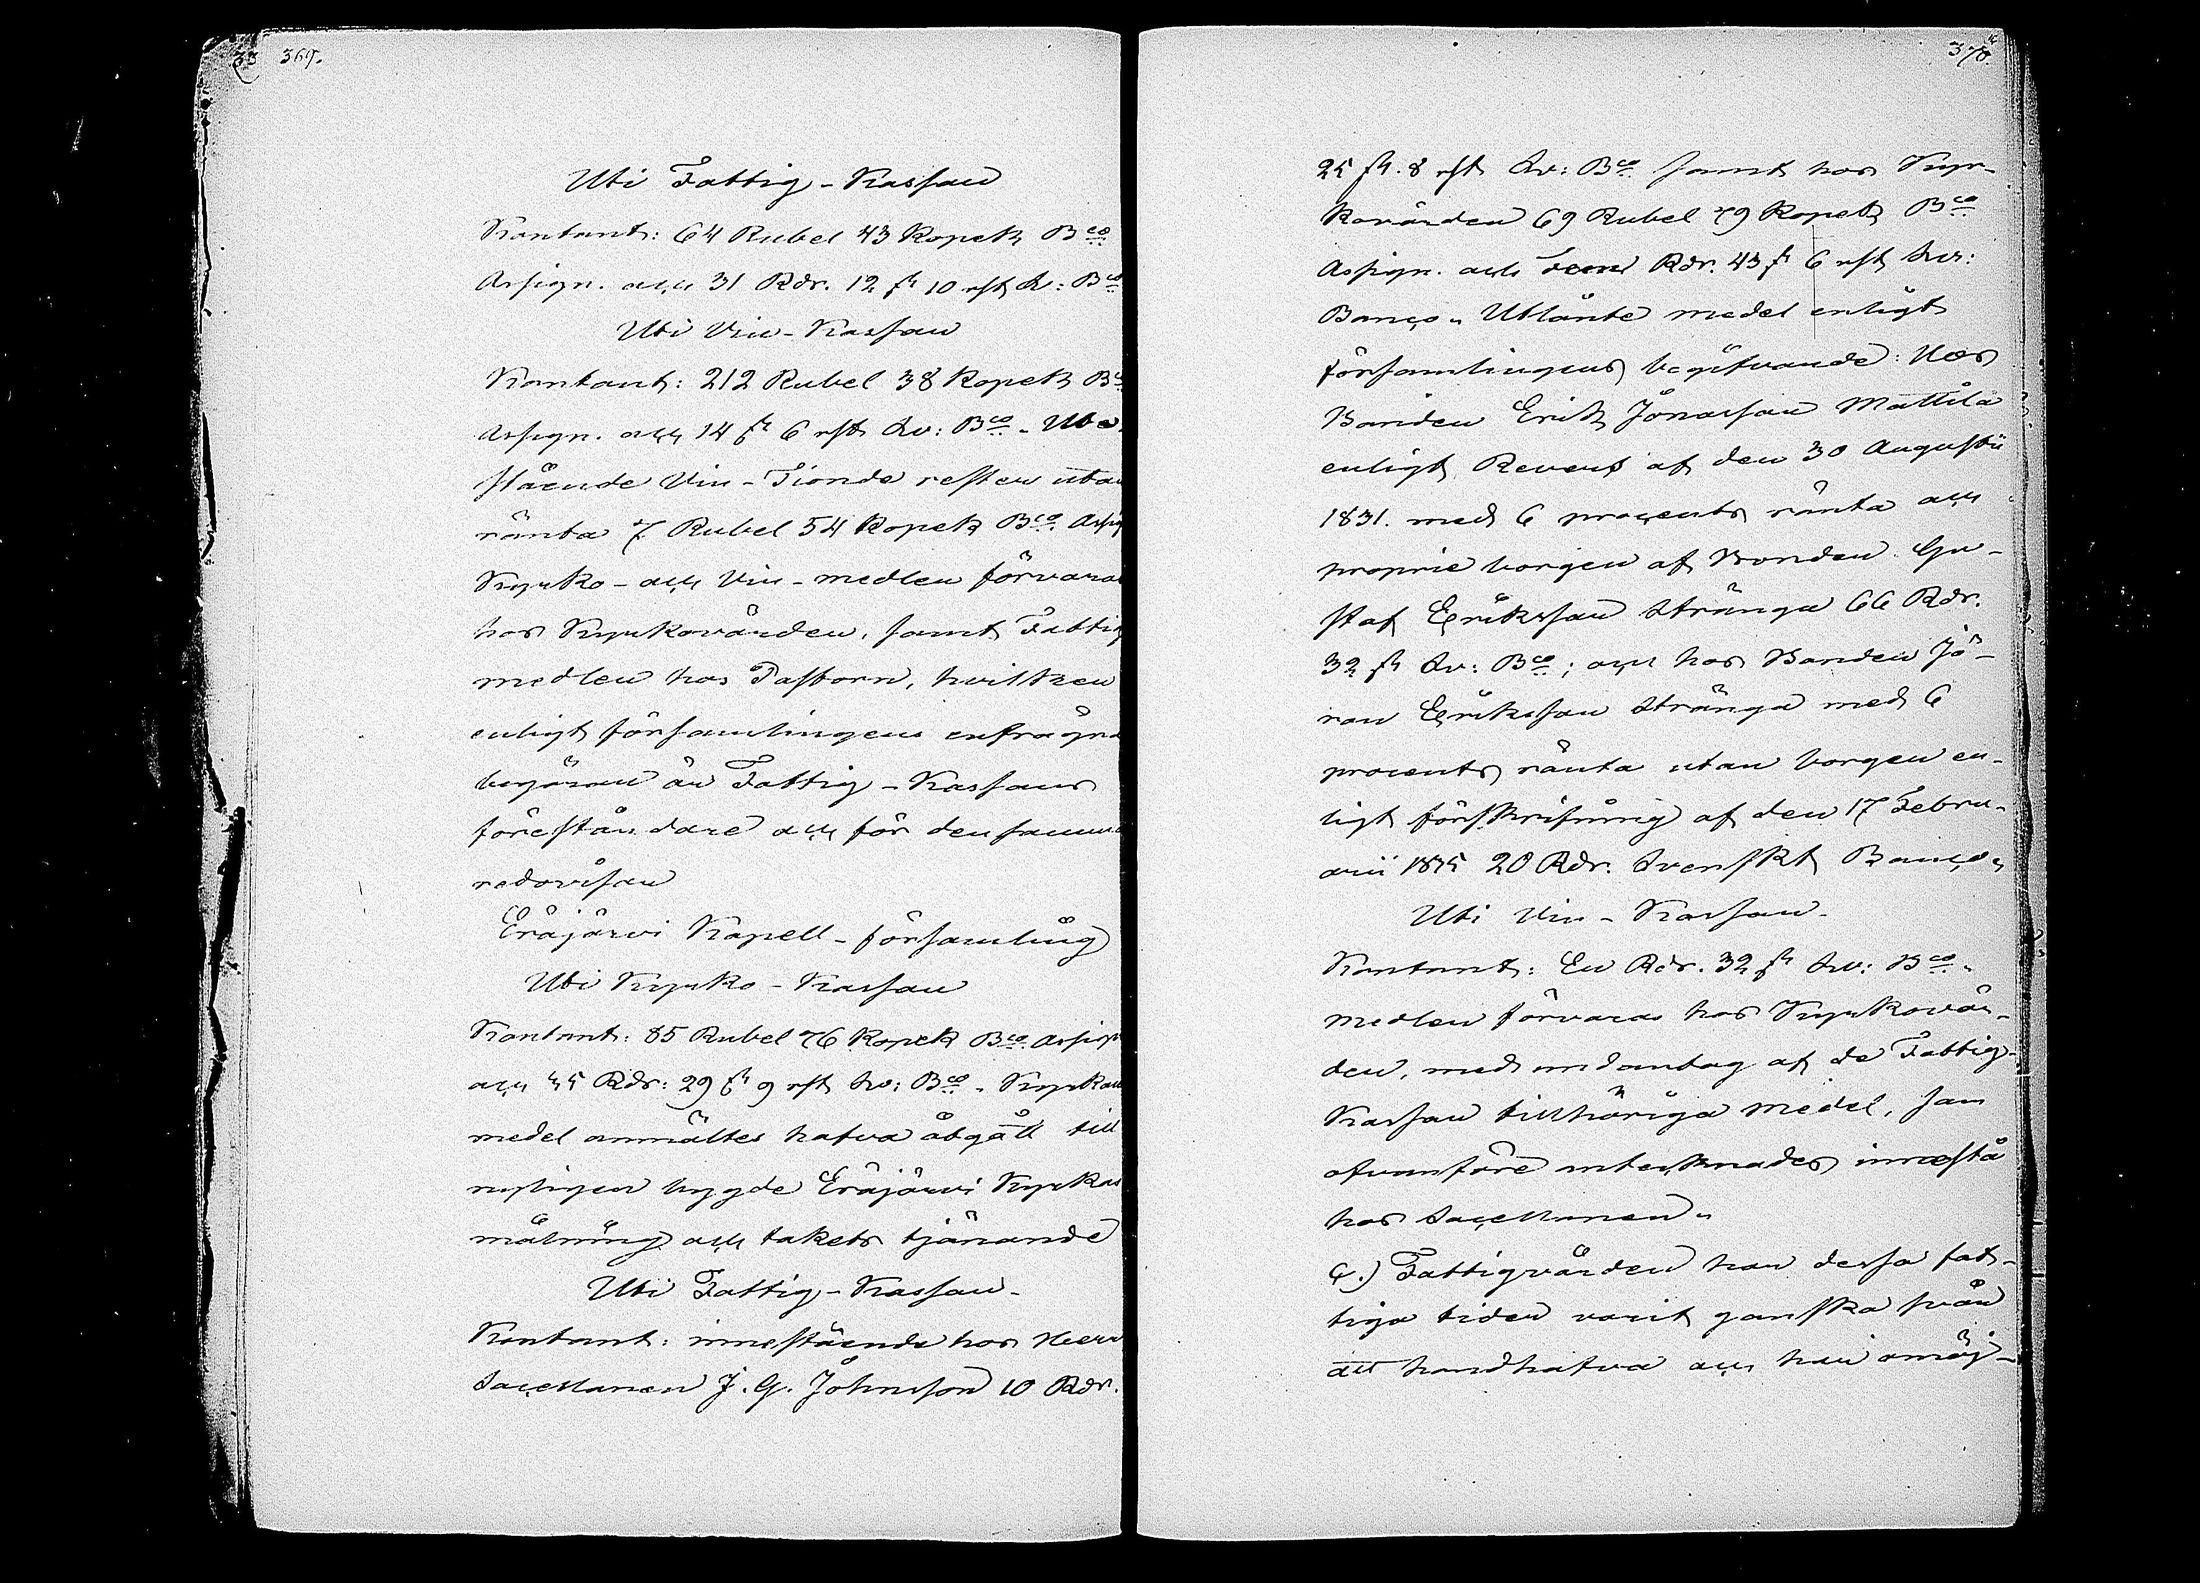 33 369.
Uti Fattig-Kassan
Kontant: 64 Rubel 43 Kopek Bco
Assign. och 31 Rdr. 12 sk 10 rst Sv: Bco
Uti Vin-Kassan
Kontant: 212 Rubel 38 Kopek Bco
Assign. och 14 sk 6 rst Sv: Bco. Ute-
stående Vin-Tionde rester utan
ränta 7 Rubel 54 Kopek Bco Assig
Kyrko- och Vin-medlen förvaras
hos Kyrkovärden, samt Fattig
medlen hos Pastorn, hvilken
enligt församlingens
begäran är Fattig-Kassans
föreståndare och för densamma
redovisar
Eräjärvi Kapell-församling
Uti Kyrko-Kassan
Kontant: 85 Rubel 76 Kopek Bco Assign
och 45 Rdr: 29 sk 9 rst Sv: Bco. Kyrkans
medel anmältes hafva åtgått till
nyligen bygde Eräjärvi Kyrkas
målning och takets tjärande
Uti Fattig-Kassan.
Kontant: innestående hos Herr
Sacellanen J. G. Johnsson 10 Rdr.
370.
25 sk. 8 rst Sv: Bco samt hos Kyr-
kovärden 69 Rubel 79 Kopek Bco
Assign. och Fem Rdr. 43 sk 6 rst Sv:
Banco. Utlånte medel enligt
församlingens begifvande: Hos
Bonden Erik Jönasson Mattila
enligt Revers af den 30 Augusti
1831. med 6 procents ränta och
proprie borgen af Bonden Gu-
staf Eriksson Stränga 66 Rdr.
32 sk Sv: Bco; och hos Bonden Jö-
ran Eriksson Stränga med 6
procents ränta utan borgen en-
ligt förskrifning af den 17 Febru-
arii 1835 20 Rdr. Svenskt Banco.
Uti Vin-Kassan.
Kontant: En Rdr. 32 sk Sv: Bco.
Medlen förvaras hos Kyrkovär-
den, med undantag af de Fattig-
Kassan tillhöriga medel, som
ofvanföre antecknades innestå
hos Sacellanen.
C.) Fattigvården har dessa fat-
tiga tider varit ganska svår
att handhafva och har omöj-